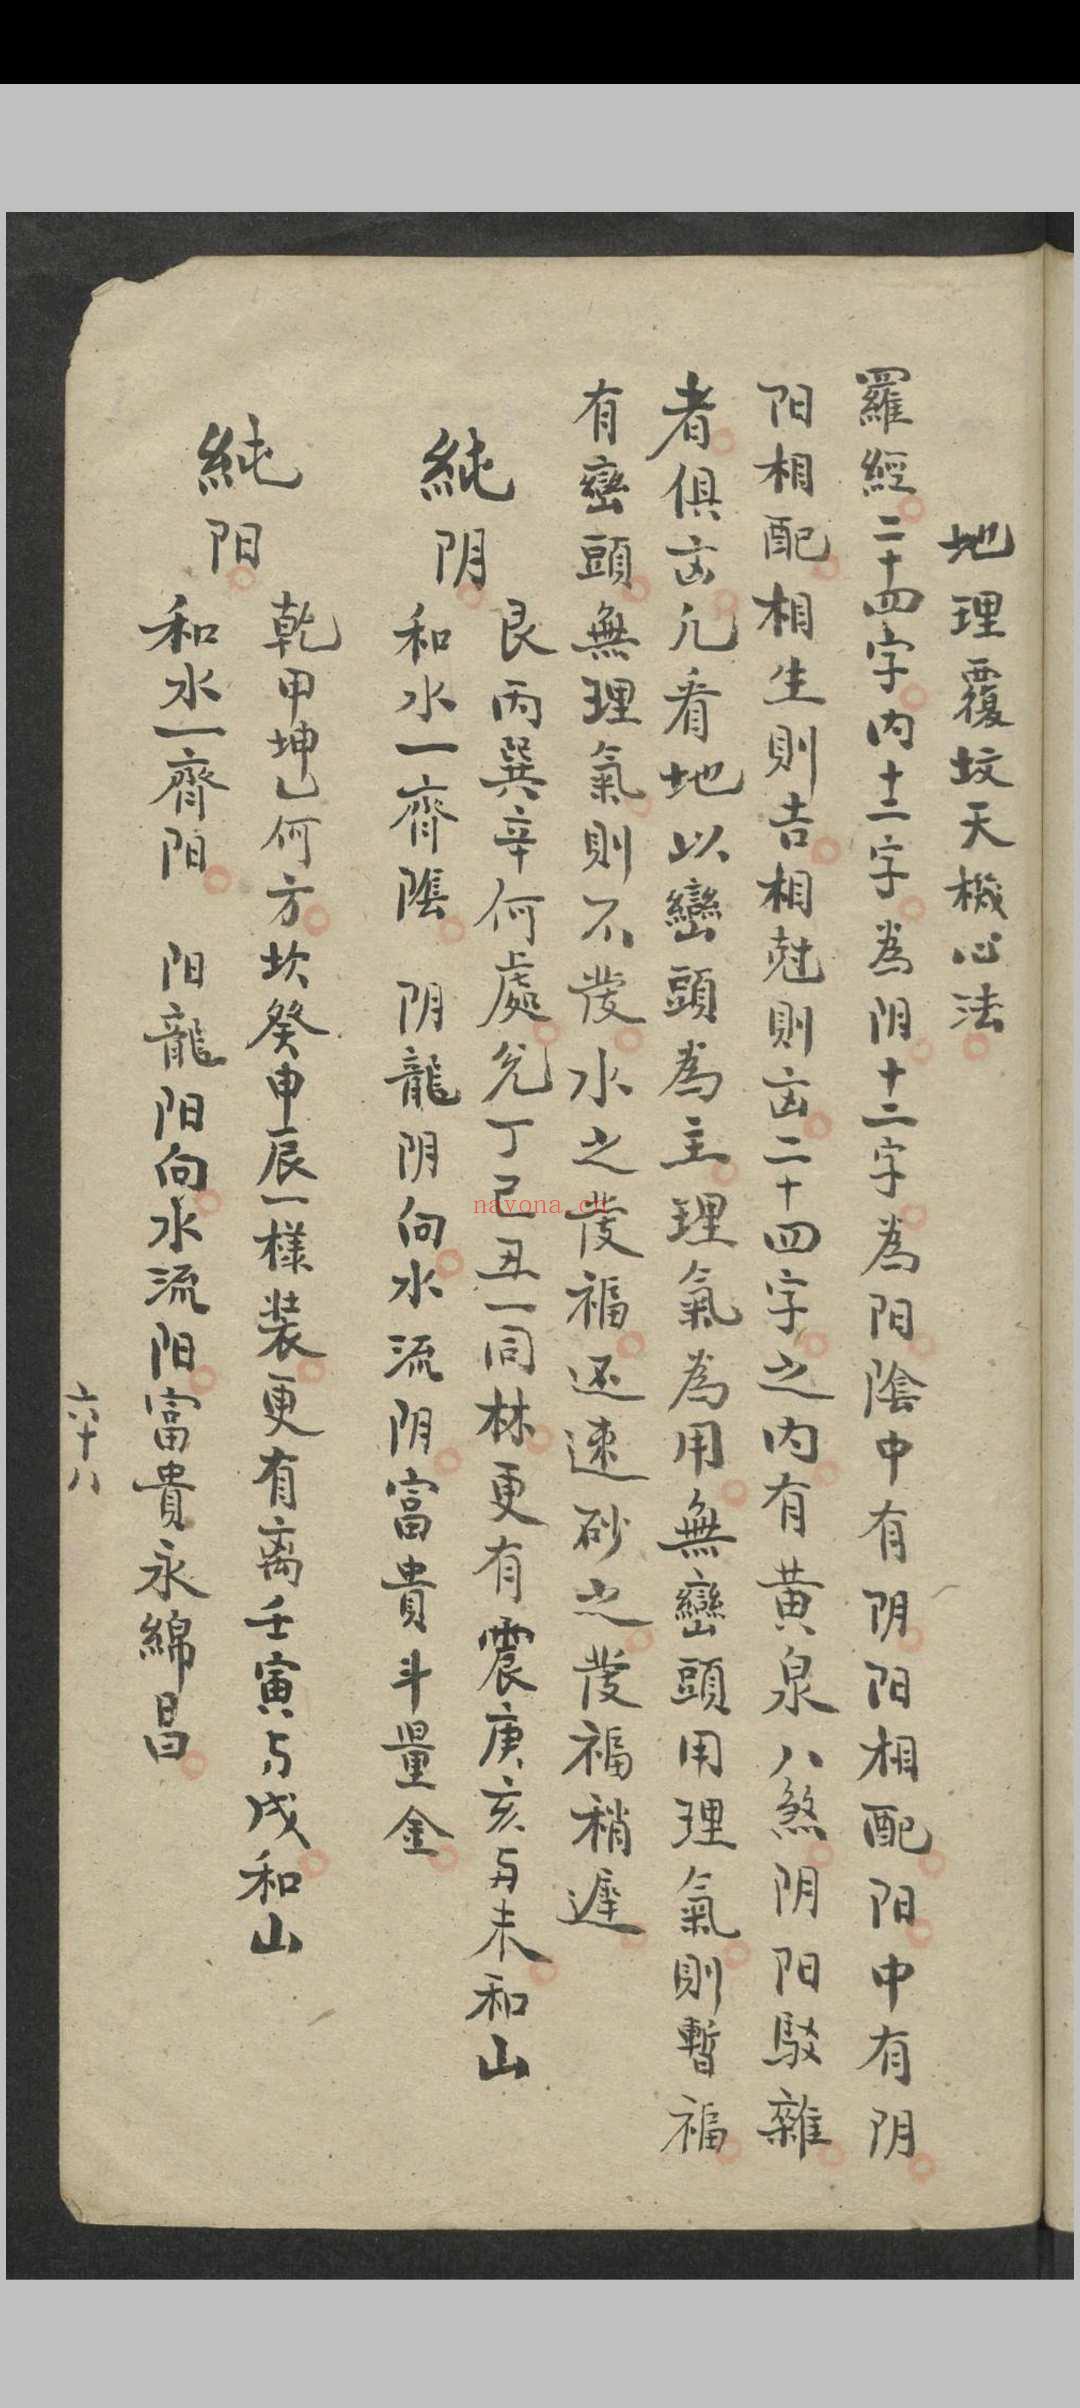 地理覆坟天機心法
羅經二十四字内十二字為阴十二字為阳陰中有阴阳相配阳中有阴
阳相配相生則吉相尅則凶二十四字之内有黄泉八煞阴阳駁雜
者俱凶凡看地以巒頭為主理氣為用無巒頭用理氣則暫福
有巒頭無理氣則不發水之發福还速砂之發福稍遲
純阴
艮丙巽辛何處兑丁己丑一同林更有震庚亥与未和山
和水一齊陰 阴龍阴向水流阴富貴斗量金
純阳
乾甲坤乙何方坎癸申辰一樣装更有离壬寅与戍和山
和水一齊阳 阳龍阳向水流阳富貴永綿昌
六十八
navona.cn